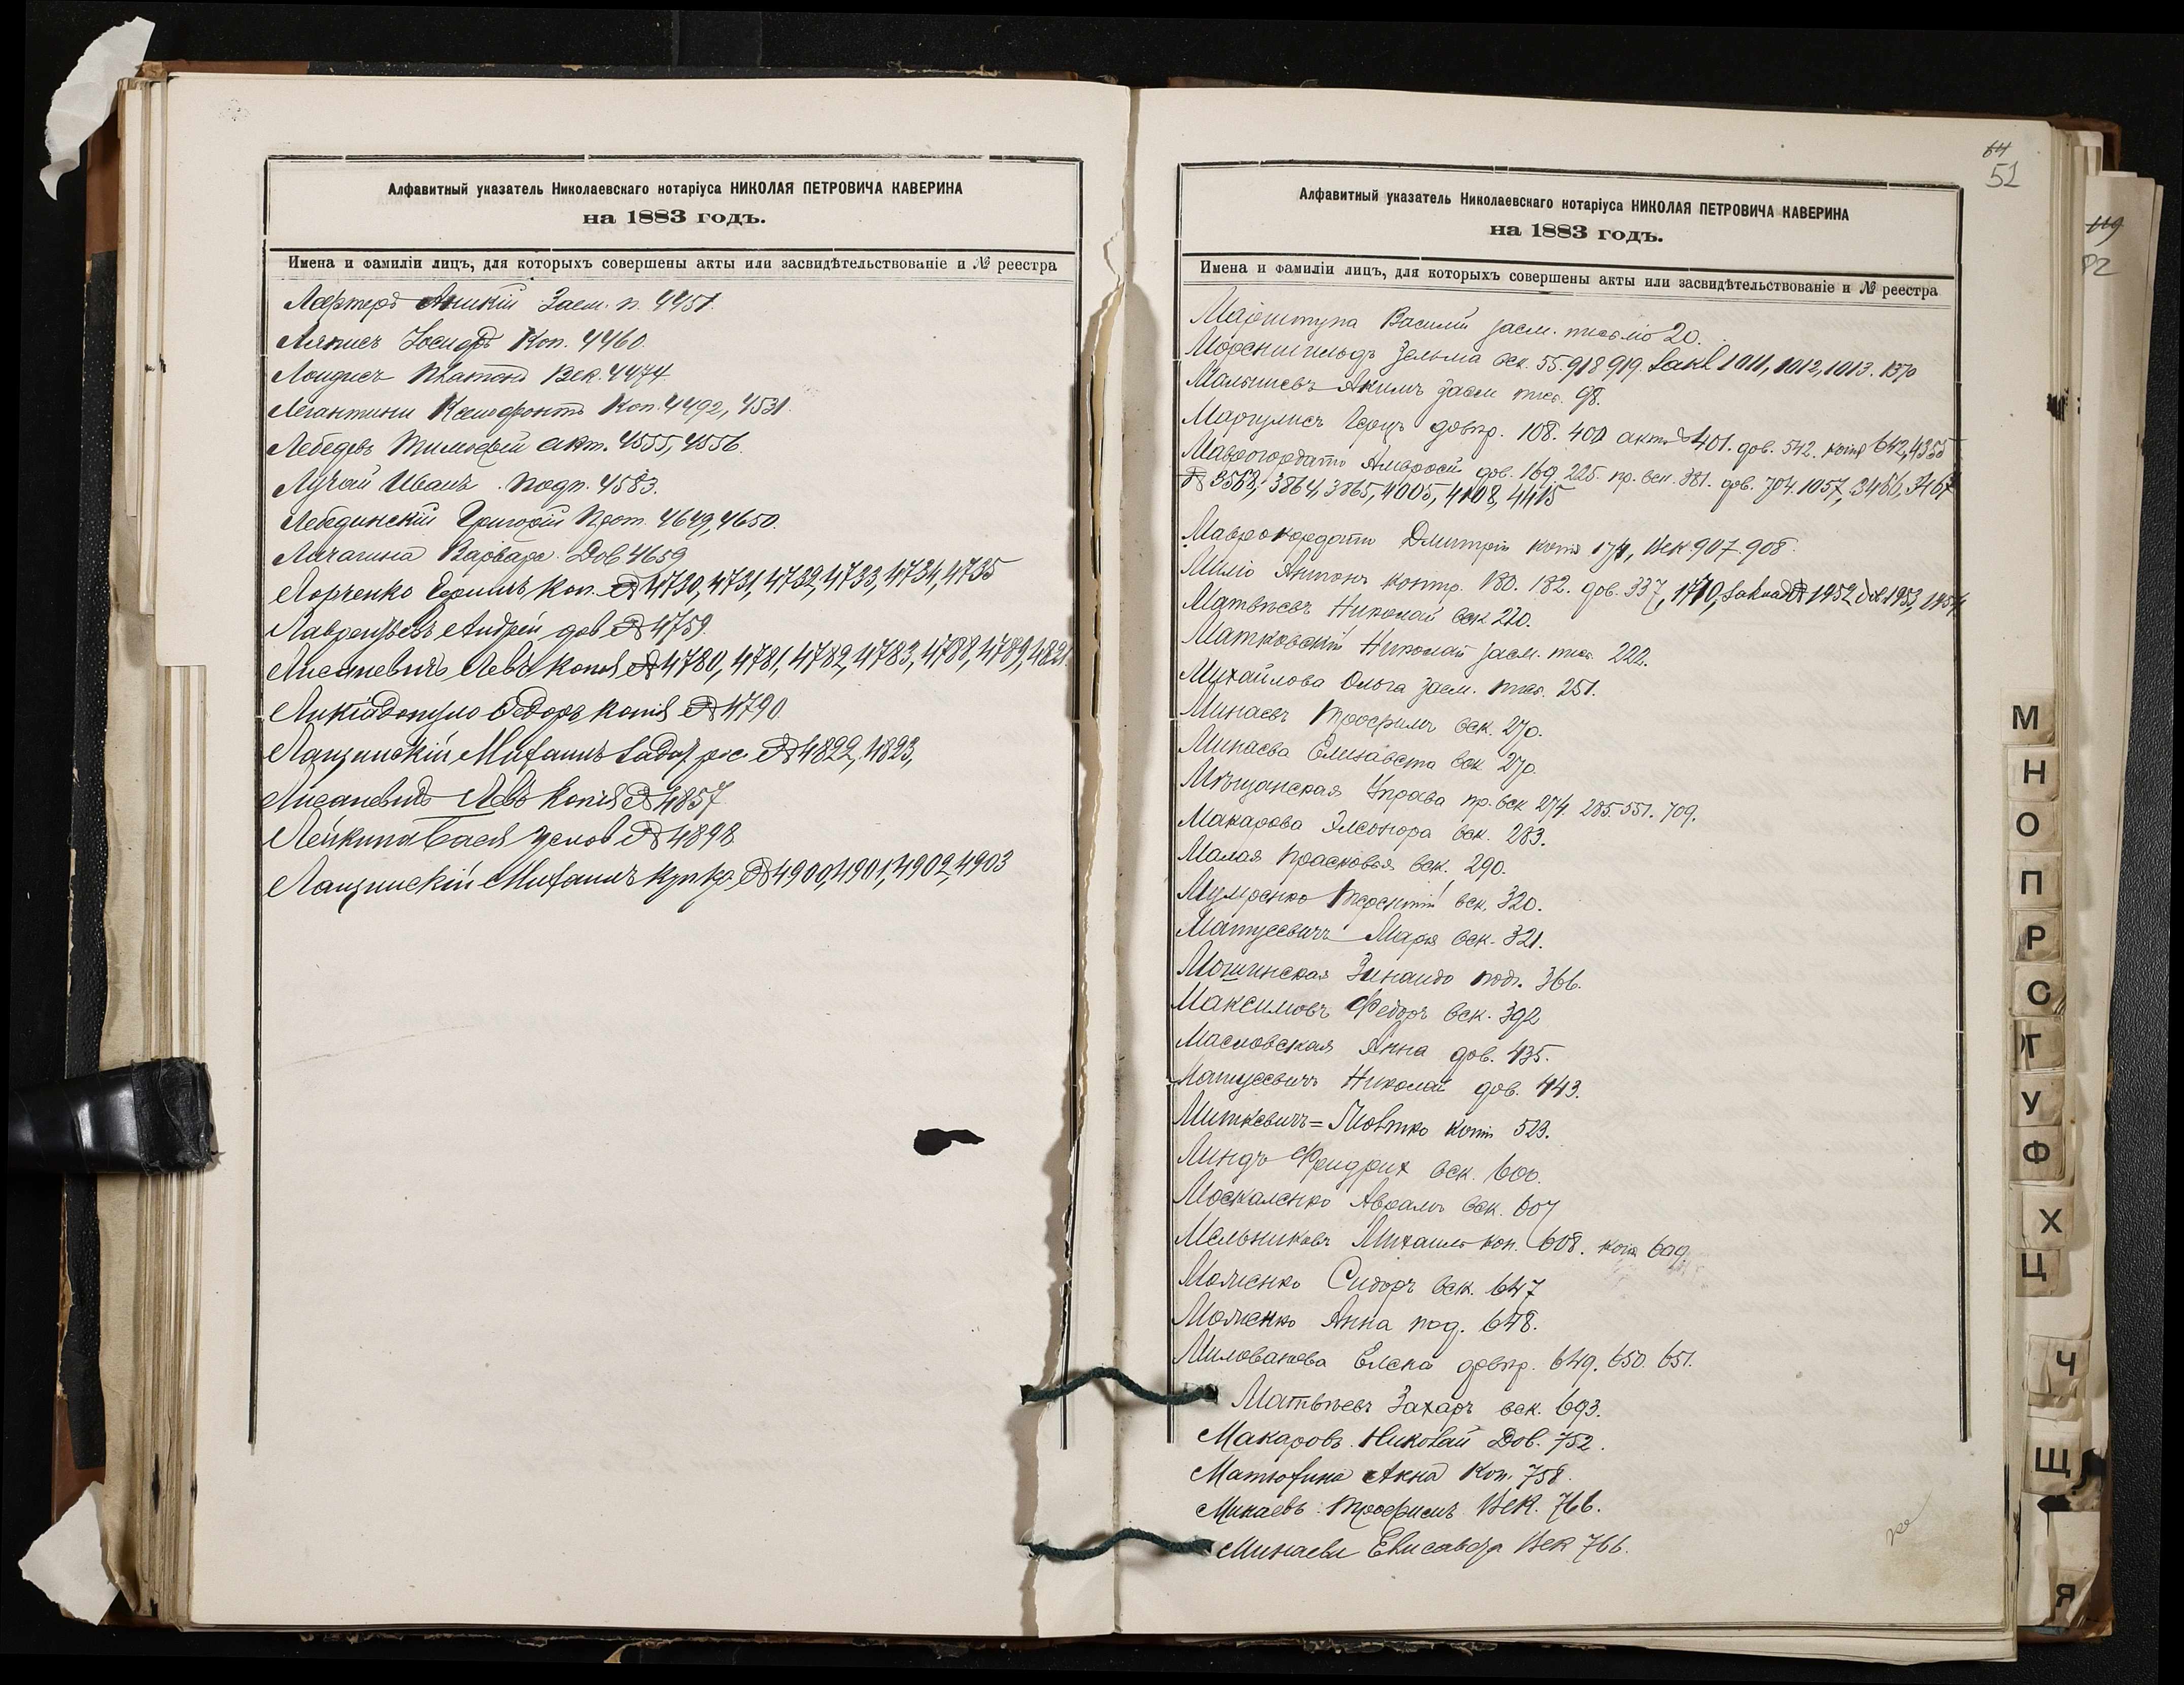 Алфавитный указатель Николаевскаго нотаріуса НИКОЛАЯ ПЕТРОВИЧА КАВЕРИНА
на 1883 годъ.
Имена и фамиліи лицъ, для которыхъ совершены акты или засвидѣтельствованіе и № реестра
Заем. п. 4451.
Іосифъ Коп. 4460
Платонъ Век. 4474
Ксенофонтъ Коп. 4492, 4531.
Лебедевъ Тимофей акт. 4555, 4556.
Лугай Иванъ. подп. 4583.
Лебединскій Григорій Прот. 4649, 4650.
Личагина Варвара. Дов. 4659
Лорченко Ефимъ Коп. № 4730, 4731, 4732, 4733, 4734, 4735
Лаврентьевъ Андрей дов № 4759.
Лисаневичъ Левъ копія № 4780, 4781, 4782, 4783, 4788, 4789, 4821.
Ликіадопуло Ѳедоръ копія № 4790.
Лащинскій Михаилъ № 4822, 4823,
Лисаневичъ Левъ копія № 4857
Лейкина Бася услов № 4898.
Лащинскій Михаилъ куп кр. № 4900, 4901, 4902, 4903
64
51
Алфавитный указатель Николаевскаго нотаріуса НИКОЛАЯ ПЕТРОВИЧА КАВЕРИНА
на 1883 годъ.
Имена и фамиліи лицъ, для которыхъ совершены акты или засвидѣтельствованіе и № реестра
Василій заем. письмо 20.
Зельма век. 55. 918 919. 1011, 1012, 1013. 1370
Малышевъ Акимъ заем пис. 98.
Маргулисъ Герцъ 108. 400 актъ 401. дов. 542. копія 642, 4355
Маврогордато Амвросій дов. 169. 225. пр. век. 381. дов. 704. 1057, 3466, 3467
№ 3568, 3864, 3865, 4005, 4108, 4415
Маврокордато Дмитрій копія 174, Век. 907. 908.
Антонъ контр. 180. 182. дов. 337, 1710, № 1952 дов 1953, 1954
Матвѣевъ Николай век 220.
Матковскій Николай заем. пис. 222.
Михайлова Ольга заем. пис. 251.
Минаевъ Трофимъ век. 270.
Минаева Елизавета век 270.
Мѣщанская Управа пр. век 274. 285. 551. 709.
Макарова Элеонора век. 283.
Малая Прасковья век. 290.
Терентій век. 320.
Матусевичъ Марія век. 321.
Мошинская Зинаида подп. 366.
Максимовъ Федоръ век. 392
Масловская Анна дов. 435.
Матусевичъ Николай дов. 443.
Миткевичъ = копія 523.
Фридрих век. 600.
Москаленко Авраамъ век. 607
Мельниковъ Михаилъ коп. 608. копія 609.
Сидоръ век. 647
Анна под. 648.
Милованова Елена 649. 650. 651.
Матвѣевъ Захаръ век. 693.
Макаровъ. Николай Дов. 752.
Матюхина Анна Коп. 758.
Минаевъ. Трофимъ Век. 766.
Минаева Елисавета Век 766.
119
82
М
Н
О
П
Р
С
Т
У
Ф
Х
Ц
Ч
Щ
Я